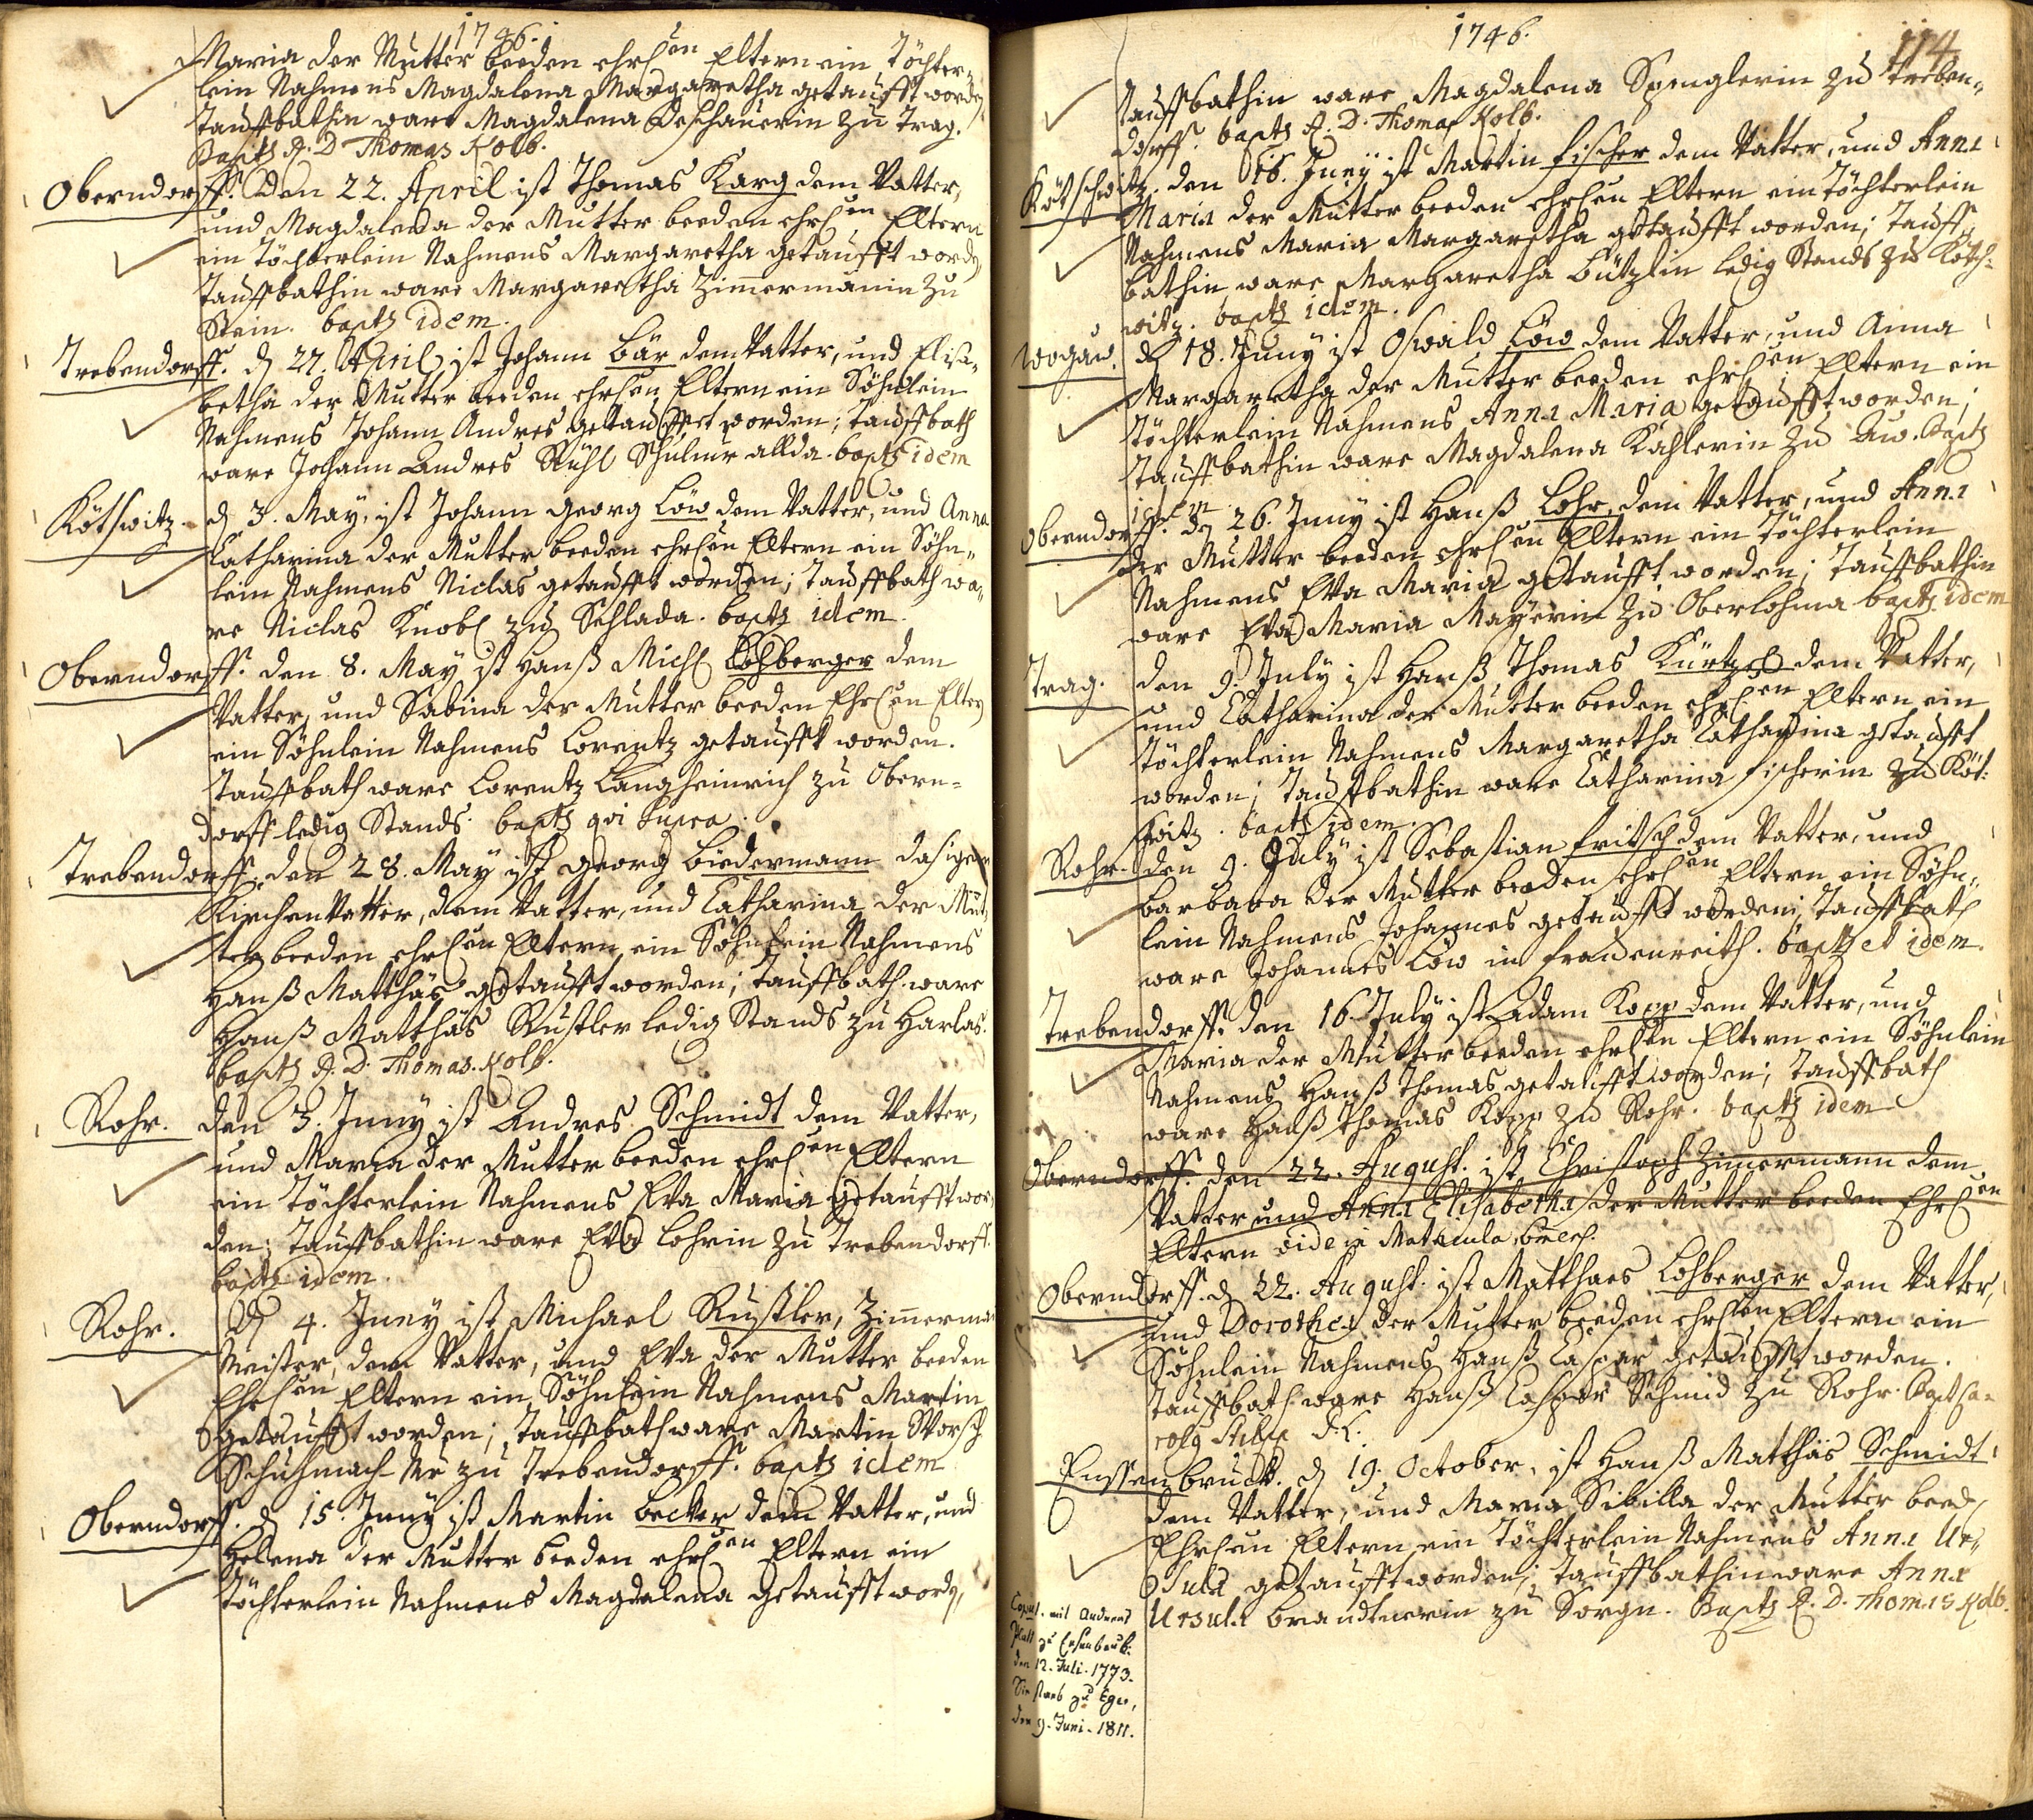 1746.
Maria der Mutter beeden ehrl.en Eltern ein Töchter-
lein Nahmens Magdalena Margaretha getaufft worden
Tauffbathin ware Magdalena Deschauerin zu Trag.
Bapts A. D. Thomas Kolb.
Oberndorff. Den 22. April ist Thomas Karg dem Vatter,
und Magdalena der Mutter beeden ehrl.en Eltern
ein Töchterlein Nahmens Margaretha getaufft worde,
Tauffbathin ware Margaretha Zimmermännin zu
Stein. bapts idem.
Trebendorff. d 27. April ist Johann Bär dem Vatter, und Elisa-
betha der Mutter beeden ehrl.en Eltern ein Söhnlein
Nahmens Johann Andres getauffet worden; Tauffbath
ware Johann Andres Rühl Schulmr allda. bapts idem
Kötswitz. d 3. May, ist Johann Georg Löw dem Vatter, und Anna
Catharina der Mutter beeden ehrl.en Eltern ein Söhn-
lein Nahmens Niclas getaufft worden; Tauffbath wa-
re Niclas Knobl zu Sehlada. bapts idem.
Oberndorff. den 8. May ist Hanß Michl Lohberger dem
Vatter, und Sabina der Mutter beeden Ehrl.en Eltern
ein Söhnlein Nahmens Lorentz getaufft worden.
Tauffbath ware Lorentz Langheinrich zu Obern-
dorff ledig Stands. bapts qvi supra.
Trebendorff. den 28. May ist Georg Biedermann dasiger
Kirchen Vatter, dem Vatter, und Catharina der Mut-
ter beeden ehrl.en Eltern ein Söhnlein Nahmens
Hanß Matthäs getaufft worden; Tauffbath ware
Hanß Matthäs Rustler ledig Stands zu Harlas.
bapts A. D. Thomas Kolb.
Rohr. den 3. Juny ist Andres Schmidt dem Vatter,
und Maria der Mutter beeden ehrl.en Eltern
ein Töchterlein Nahmens Eva Maria getaufft wor-
den; Tauffbathin ware Eva Lohrin zu Trebendorff.
bapts idem.
Rohr. d 4. Juny ist Michael Rustler, Zimmerma
Meister, dem Vatter, und Eva der Mutter beeden
Ehrl.en Eltern ein Söhnlein Nahmens Martin
getaufft worden; Tauffbath ware Martin
Schuhmach Mr zu Trebendorff. bapts idem
Oberndorff. d 15. Juny ist Martin Becker dem Vatter, und
Helena der Mutter beeden ehrl.en Eltern ein
Töchterlein Nahmens Magdalena getaufft word,
1746.
114
Tauffbathin ware Magdalena Spenglerin zu Treben-
dorff. bapts A. D. Thomas Kolb.
Kötschwitz. den 16. Juny ist Martin Fischer dem Vatter, und Anna
Maria der Mutter beeden ehrl.en Eltern ein Töchterlein
Nahmens Maria Margaretha getaufft worden; Tauff-
bathin ware Margaretha Lützlin ledig Stands zu Kötsch-
witz. bapts idem.
Wogau. d 18. Juny ist Oswald Löw dem Vatter, und Anna
Margaretha der Mutter beeden ehrl.en Eltern ein
Töchterlein Nahmens Anna Maria getaufft worden;
Tauffbathin ware Magdalena Kahlerin zu Au. bapts
idem
Oberndorff. den 26. Juny ist Hanß Lohr, dem Vatter, und Anna
der Mutter beeden ehrl.en Eltern ein Töchterlein
Nahmens Eva Maria getaufft worden; Tauffbathin
ware Eva Maria Mayerin zu Oberlohma bapts idem
Trag. den 9. July ist Hanß Thomas Kürtzel dem Vatter,
und Catharina der Mutter beeden ehrl.en Eltern ein
Töchterlein Nahmens Margaretha Catharina getaufft
worden; Tauffbathin ware Catharina Fischerin zu Köt-
switz. bapts idem.
Rohr. den 9. July ist Sebastian Fritsch dem Vatter, und
Barbara der Mutter beeden ehrl.en Eltern ein Söhn-
lein Nahmens Johannes getaufft worden; Tauffbath
ware Johannes Löw in Frauenreith. bapts et idem.
Trebendorff. den 16. July ist Adam Kopp dem Vatter, und
Maria der Mutter beeden ehrl.en Eltern ein Söhnlein
Nahmens Hanß Thomas getaufft worden; Tauffbath
ware Hanß Thomas Kopp zu Rohr. bapts idem
Oberndorff. den 22. August. ist Christoph Zimmermann dem
Vatter und Anna Elisabetha der Mutter beeden Ehrl.en
Eltern vide in Matricula
Oberndorff. d 22. August. ist Matthaes Lohberger dem Vatter,
und Dorothea der Mutter beeden ehrl.en Eltern ein
Söhnlein Nahmens Hanß Caspar getaufft worden.
Tauffbath ware Hanß Caspar Schmid zu Rohr.
Enssenbruck. d 19. October, ist Hanß Matthäs Schmidt
dem Vatter, und Maria Sibilla der Mutter beed,
Ehrl.en Eltern ein Töchterlein Nahmens Anna Ur-
sula getaufft worden; Tauffbathin ware Anna
Ursula Brandtnerin zu Sorgn. Bapts A. D. Thomas Kolb.
Copul. mit Andreas
Plail zu Ensenbruk.
den 12. Juli. 1773.
Sie starb zu Eger,
den 9. Juni. 1811.